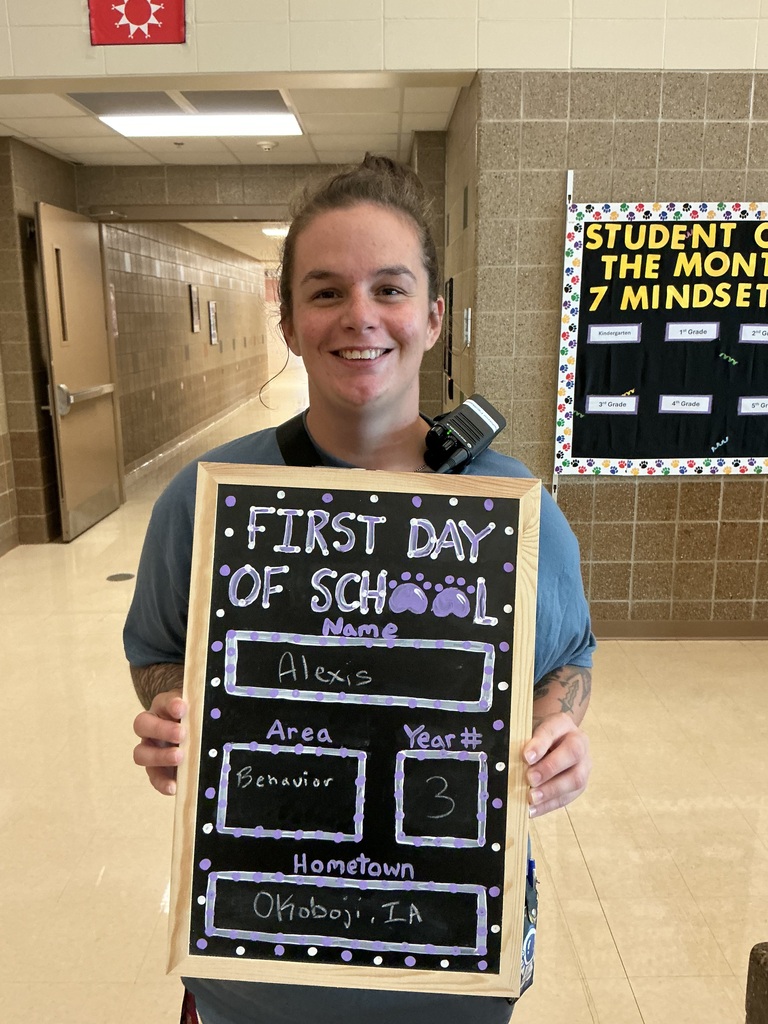 STUDENT O
THE MONT
7 MINDSET
Kindergarten
1st Grade
2nd G
3rd Grade
4th Grade
5th
FIRST DAY
OF SCHOOL
Name
Alexis
Area
Year #
Behavior
3
Hometown
Okoboji, IA